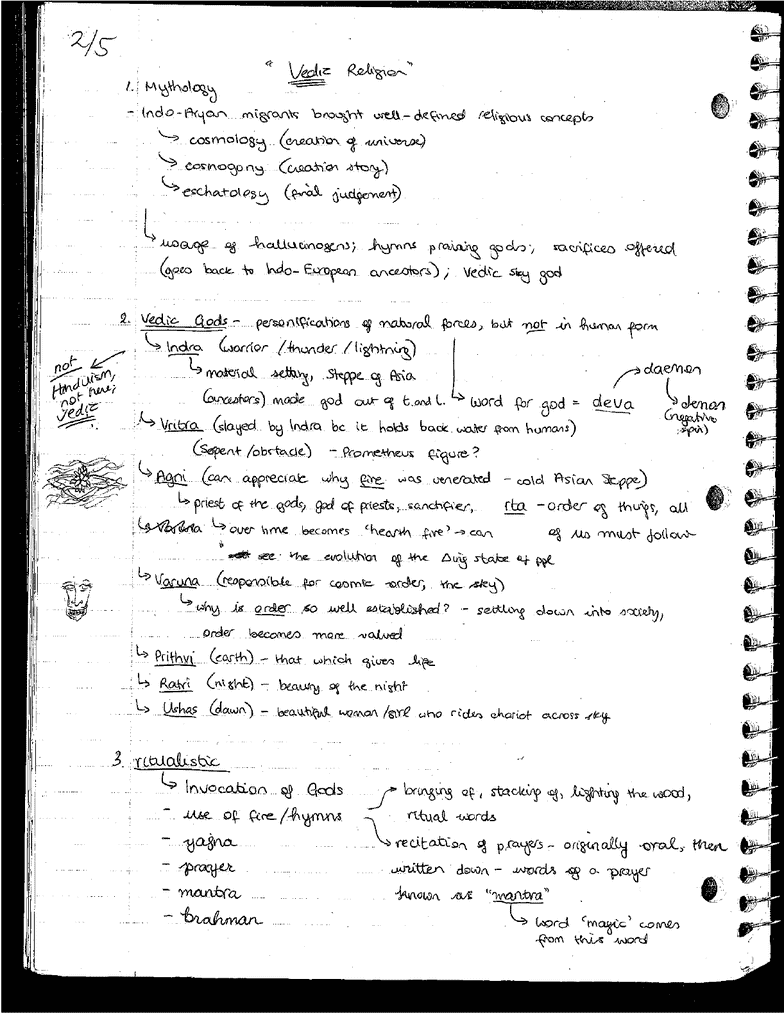 2/5
"Vedic Religion"
1. Mythology
- Indo-Aryan migrants brought well-defined religious concepts
↳ cosmology (creation of universe)
↳ cosnogony (creation story)
↳ eschatology (final judgement)
↳ usage of hallucinogens; hymns praising gods; sacrifices offered
(goes back to Indo-European ancestors); Vedic sky god
2. Vedic Gods - personifications of natural forces, but not in human form
↳ Indra (warrior/thunder/lightning)
not Hinduism,
not here;
vedic
↳ material setting, Steppe of Asia
(ancestors) made god out of t. and l.
↳ word for god = deva
daemon
demon
(negative
spin)
↳ Vritra (slayed by Indra bc it holds back water from humans)
(Sepent/obstacle) - Prometheus figure?
↳ Agni (can appreciate why fire was venerated - cold Asian Steppe)
↳ priest of the gods, god of priests, sanctifier,
rta - order of things, all
of us must follow
↳ over time becomes 'hearth fire' → can
see the evolution of the living state of ppl
↳ Varuna (responsible for cosmic order, the sky)
↳ why is order so well established? - settling down into society,
order becomes more valued
↳ Prithvi (earth) - that which gives life
↳ Ratri (night) - beauty of the night
↳ Ushas (dawn) - beautiful woman/girl who rides chariot across sky
3. ritualistic
↳ Invocation of Gods
- use of fire/hymns
bringing of, stacking of, lighting the wood,
ritual words
- yajna
- prayer
- mantra
- brahman
recitation of prayers - originally oral, then
written down - words of a prayer
known as "mantra"
↳ word 'magic' comes
from this word